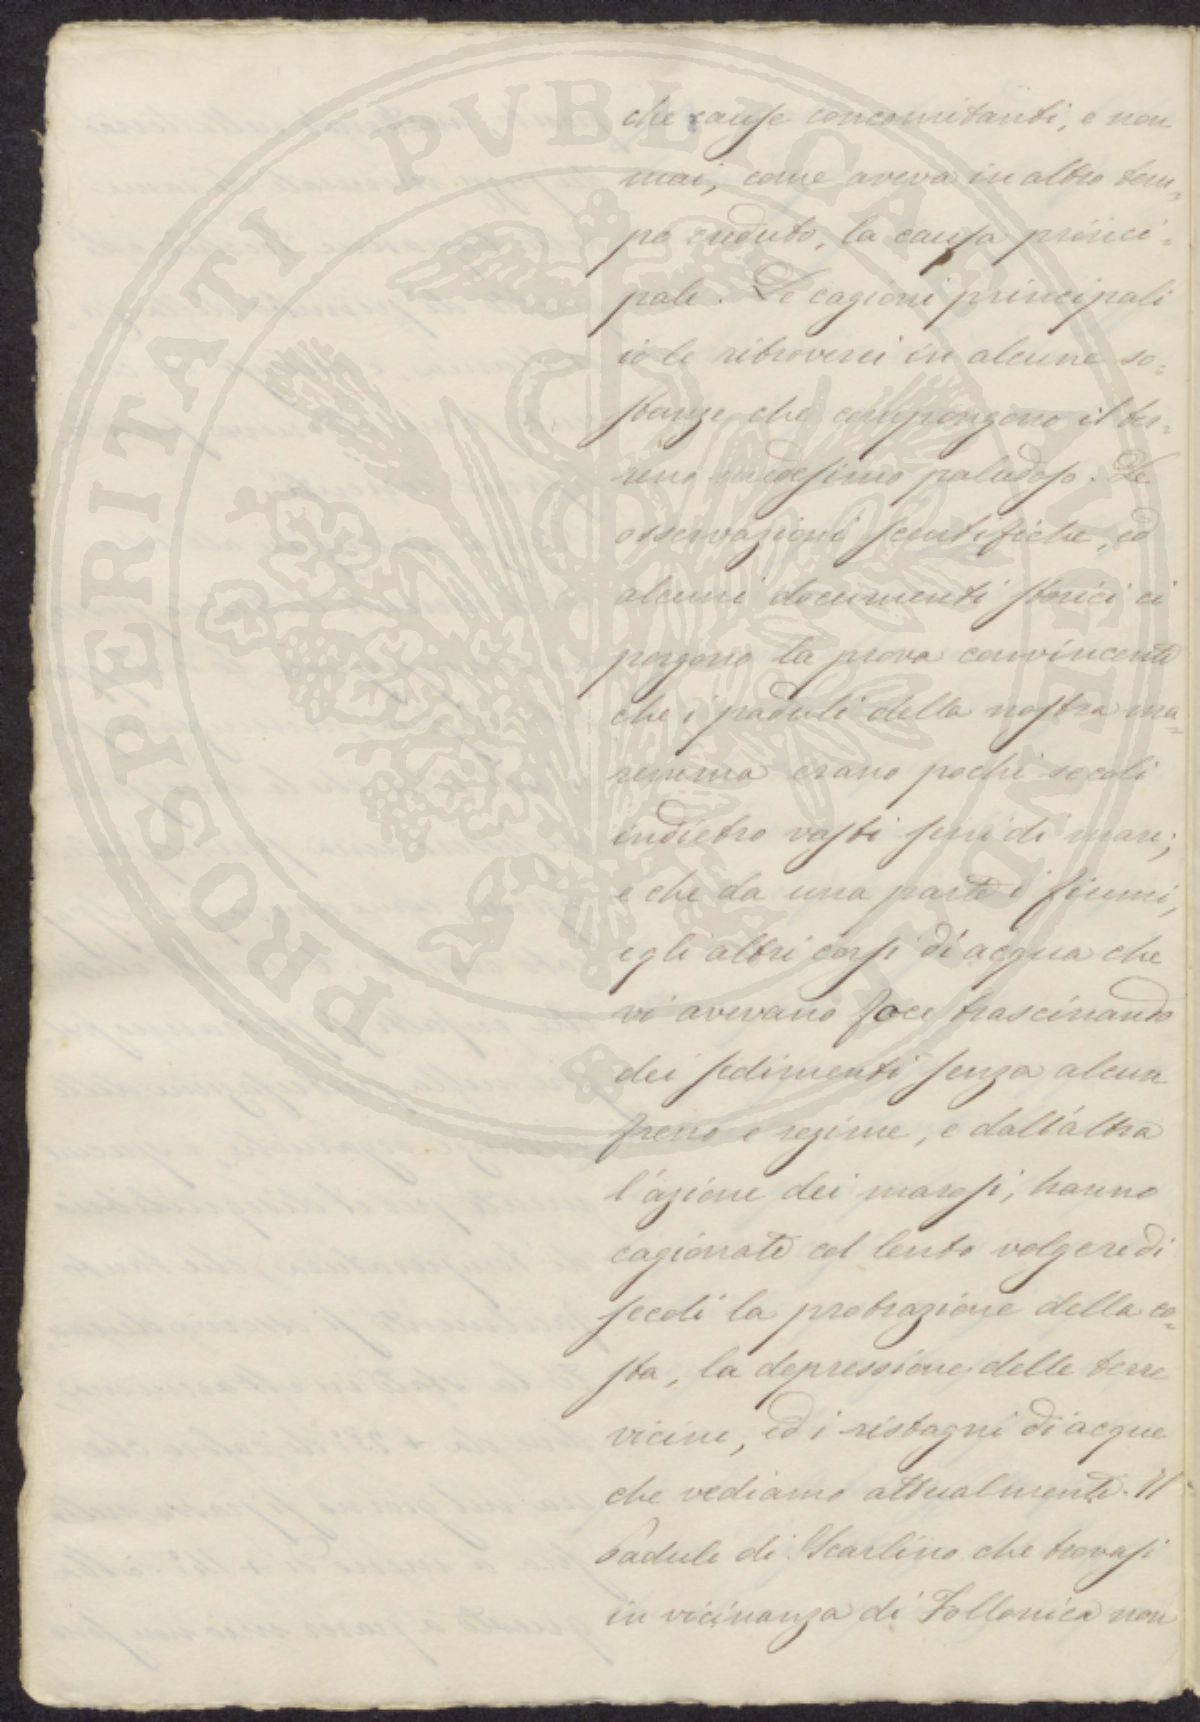 che cause concomitanti, e non
mai, come aveva in altro tem=
po creduto, la causa princi=
pale. Le cagioni principali
io le ritroverei in alcune so=
stanze che compongono il ter=
reno medesimo paludoso. Le
osservazioni scientifiche, ed
alcuni documenti storici ci
porgono la prova convincente
che i paduli della nostra ma=
remma erano pochi secoli
indietro vasti seni di mare;
e che da una parte i fiumi,
e gli altri corsi d'acqua che
vi avevano foce trascinando
dei sedimenti senza alcun
freno e regime, e dall'altra
l'azione dei marosi, hanno
cagionato col lento volgere di
secoli la protrazione della co=
sta, la depressione delle terre
vicine, ed i ristagni di acque
che vediamo attualmente. Il
Padule di Scarlino che trovasi
in vicinanza di Follonica non
PROSPERITATI PVBLICAE AVGENDAE